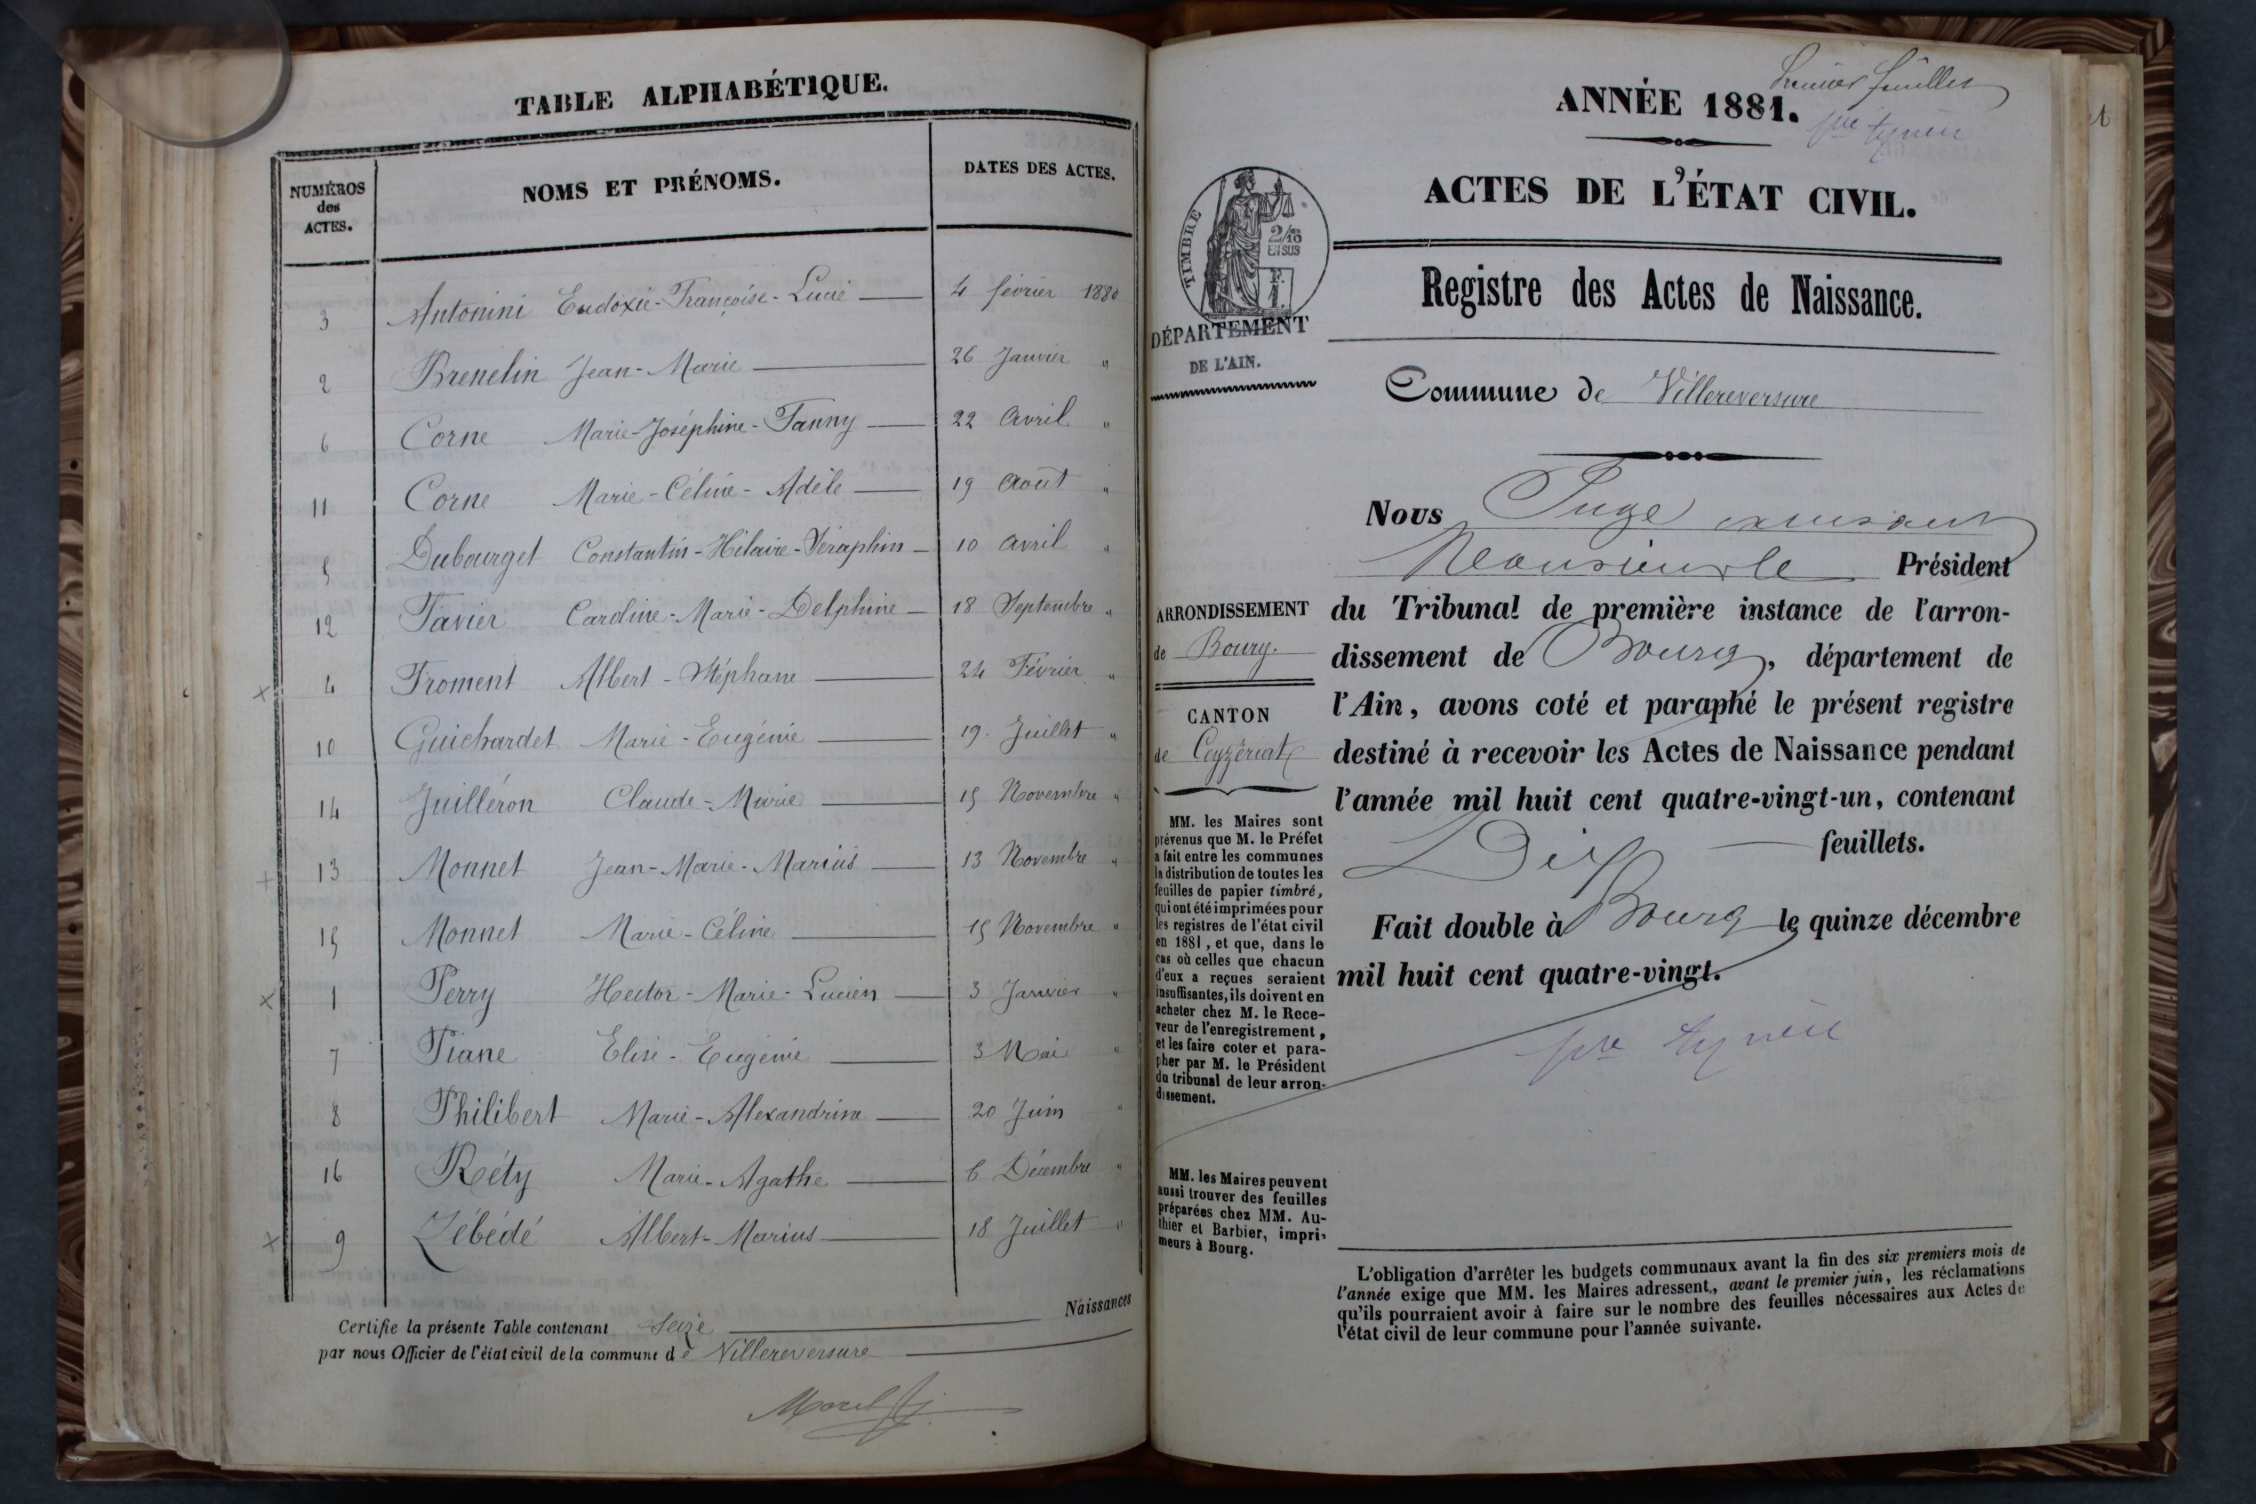 TABLE ALPHABÉTIQUE.
NUMÉROS des ACTES.
NOMS ET PRÉNOMS.
DATES DES ACTES.
3 Antonini Eudoxie-Françoise-Lucie 4 février 1880
2 Brenelin Jean-Marie 26 Janvier "
6 Corne Marie-Joséphine-Fanny 22 Avril "
11 Corne Marie-Céline-Adèle 19 Août "
5 Dubourget Constantin-Hilaire-Séraphin 10 avril "
12 Favier Caroline-Marie-Delphine 18 Septembre "
4 Froment Albert-Stéphane 24 Février "
10 Guichardet Marie-Eugénie 19 Juillet "
14 Juilléron Claude-Marie 15 Novembre "
13 Monnet Jean-Marie-Marius 13 Novembre "
15 Monnet Marie-Céline 15 Novembre "
1 Perry Hector-Marie-Lucien 3 Janvier "
7 Piane Elise-Eugénie 3 Mai "
8 Philibert Marie-Alexandrine 20 Juin "
16 Réty Marie-Agathe 6 Décembre "
9 Zébédé Albert-Marius 18 Juillet "
Certifie la présente Table contenant Seize Naissances
par nous Officier de l'état civil de la commune de Villereversure
Morel
Premier feuillet
ANNÉE 1881.
ACTES DE L'ÉTAT CIVIL.
TIMBRE
2/10
EN SUS
F.
1.
DÉPARTEMENT
DE L'AIN.
Registre des Actes de Naissance.
Commune de Villereversure
ARRONDISSEMENT
de Bourg.
CANTON
de Ceyzériat
MM. les Maires sont
prévenus que M. le Préfet
a fait entre les communes
la distribution de toutes les
feuilles de papier timbré,
qui ont été imprimées pour
les registres de l'état civil
en 1881, et que, dans le
cas où celles que chacun
d'eux a reçues seraient
insuffisantes, ils doivent en
acheter chez M. le Rece-
veur de l'enregistrement,
et les faire coter et para-
pher par M. le Président
du tribunal de leur arron-
dissement.
MM. les Maires peuvent
aussi trouver des feuilles
préparées chez MM. Au-
thier et Barbier, impri-
meurs à Bourg.
Nous Juge
Monsieur le Président
du Tribunal de première instance de l'arron-
dissement de Bourg, département de
l'Ain, avons coté et paraphé le présent registre
destiné à recevoir les Actes de Naissance pendant
l'année mil huit cent quatre-vingt-un, contenant
Dix feuillets.
Fait double à Bourg le quinze décembre
mil huit cent quatre-vingt.
L'obligation d'arrêter les budgets communaux avant la fin des six premiers mois de
l'année exige que MM. les Maires adressent, avant le premier juin, les réclamations
qu'ils pourraient avoir à faire sur le nombre des feuilles nécessaires aux Actes de
l'état civil de leur commune pour l'année suivante.